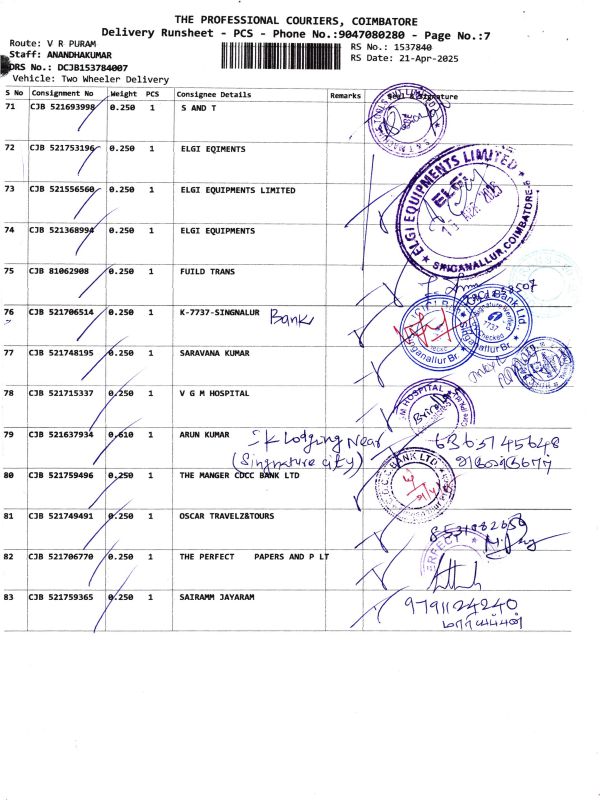 THE PROFESSIONAL COURIERS, COIMBATORE
Delivery Runsheet - PCS - Phone No.:9047080280 - Page No.:7
Route: V R PURAM
RS No.: 1537840
Staff: ANANDHAKUMAR
RS Date: 21-Apr-2025
DRS No.: DCJB153784007
Vehicle: Two Wheeler Delivery
S No Consignment No Weight PCS Consignee Details Remarks Seal & Signature
71 CJB 521693998 0.250 1 S AND T
72 CJB 521753196 0.250 1 ELGI EQIMENTS
73 CJB 521556560 0.250 1 ELGI EQUIPMENTS LIMITED
ELGI EQUIPMENTS LIMITED
ELGi
SINGANALLUR, COIMBATORE
74 CJB 521368994 0.250 1 ELGI EQUIPMENTS
75 CJB 81062908 0.250 1 FUILD TRANS
76 CJB 521706514 0.250 1 K-7737-SINGNALUR Bank
ICICI Bank Ltd.
7737
Singanallur Br.
Singanallur Br.
77 CJB 521748195 0.250 1 SARAVANA KUMAR
78 CJB 521715337 0.250 1 V G M HOSPITAL
M HOSPITAL
79 CJB 521637934 0.610 1 ARUN KUMAR SK Lodging Near
(Singnature city)
6363745648
80 CJB 521759496 0.250 1 THE MANGER CDCC BANK LTD
BANK LTD
81 CJB 521749491 0.250 1 OSCAR TRAVELZ&TOURS
82 CJB 521706770 0.250 1 THE PERFECT PAPERS AND P LT
83 CJB 521759365 0.250 1 SAIRAMM JAYARAM
9791124240